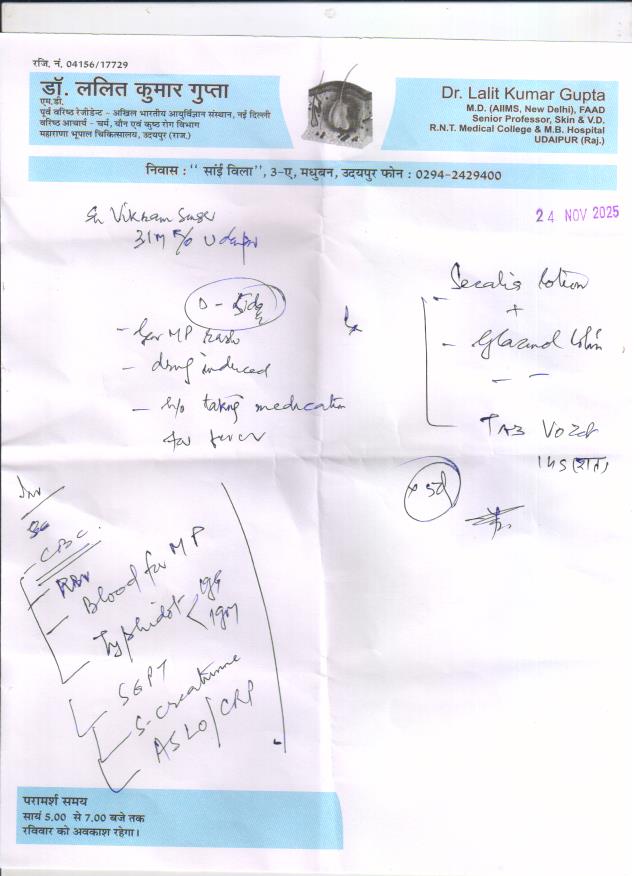 रजि. नं. 04156/17729
डॉ. ललित कुमार गुप्ता
एम.डी.
पूर्व वरिष्ठ रेजीडेन्ट - अखिल भारतीय आयुर्विज्ञान संस्थान, नई दिल्ली
वरिष्ठ आचार्य - चर्म, यौन एवं कुष्ठ रोग विभाग
महाराणा भूपाल चिकित्सालय, उदयपुर (राज.)
Dr. Lalit Kumar Gupta
M.D. (AIIMS, New Delhi), FAAD
Senior Professor, Skin & V.D.
R.N.T. Medical College & M.B. Hospital
UDAIPUR (Raj.)
निवास : '' सांई विला'', 3-ए, मधुबन, उदयपुर फोन : 0294-2429400
24 NOV 2025
Vikram
31M R/o Udaipur
D - 5d
- MP rash
- drug induced
- h/o taking medication
for fever
lotion
+
- lotion
- -
TAB
1HS
x 5d
Inv
- CBC
- Blood for MP
- Typhidot < IgG
IgM
SGPT
S-creatinine
ASLO/CRP
परामर्श समय
सायं 5.00 से 7.00 बजे तक
रविवार को अवकाश रहेगा।